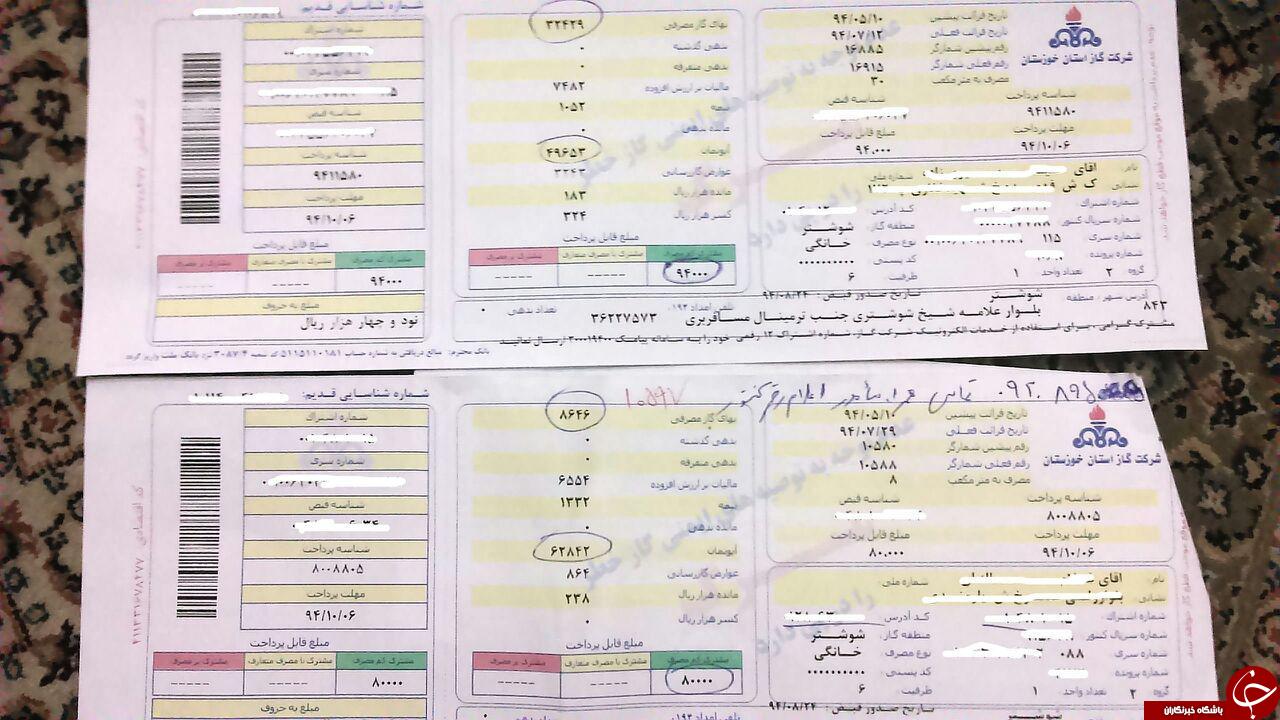 شماره شناسایی قدیم:
شماره اشتراک
شماره سری
شناسه قبض
شناسه پرداخت
۹۴۱۱۵۸۰
مهلت پرداخت
۹۴/۱۰/۰۶
مبلغ قابل پرداخت
مشترک کم مصرف مشترک با مصرف متعارف مشترک پر مصرف
۹۴۰۰۰ ----- -----
مبلغ به حروف
نود و چهار هزار ریال
بهای گاز مصرفی ۳۲۴۲۹
بدهی گذشته ۰
بدهی متفرقه ۰
مالیات بر ارزش افزوده ۷۴۸۲
بیمه ۱۰۵۲
مانده بدهی ۰
آبونمان ۴۹۶۵۳
عوارض گازرسانی
مانده هزار ریال ۱۸۳
کسر هزار ریال ۳۲۴
مبلغ قابل پرداخت
مشترک کم مصرف مشترک با مصرف متعارف مشترک پر مصرف
۹۴۰۰۰ ----- -----
شرکت گاز استان خوزستان
تاریخ قرائت پیشین ۹۴/۰۵/۱۰
تاریخ قرائت فعلی ۹۴/۰۷/۱۲
رقم پیشین شمارگر ۱۶۸۸۵
رقم فعلی شمارگر ۱۶۹۱۵
مصرف به متر مکعب ۳۰
شناسه پرداخت شناسه قبض
۹۴۱۱۵۸۰
مهلت پرداخت مبلغ قابل پرداخت
۹۴/۱۰/۰۶ ۹۴.۰۰۰
نام: آقای
نشانی شماره ملی
شماره اشتراک کد آدرس
شماره سریال کنتور منطقه گاز: شوشتر
شماره سری ۱۱۵ نوع مصرف خانگی
شماره پرونده کد پستی ۰۰۰۰۰۰۰۰۰۰
گروه ۲ تعداد واحد ۱ ظرفیت ۶
تاریخ صدور قبض: ۹۴/۰۸/۲۴
آدرس شهر/ منطقه: شوشتر
۸۴۳ بلوار علامه شیخ شوشتری جنب ترمینال مسافربری ۳۶۲۲۷۵۷۳ تلفن امداد: ۱۹۴ تعداد بدهی ۰
مشترک گرامی، برای استفاده از خدمات الکترونیک شرکت گاز، شماره اشتراک ۱۲ رقمی خود را به سامانه پیامک ۳۰۰۰۱۹۴۰۰ ارسال نمائید.
شماره شناسایی قدیم:
شماره اشتراک
شماره سری
شناسه قبض
شناسه پرداخت
۸۰۰۸۸۰۵
مهلت پرداخت
۹۴/۱۰/۰۶
مبلغ قابل پرداخت
مشترک کم مصرف مشترک با مصرف متعارف مشترک پر مصرف
۸۰۰۰۰ ----- -----
مبلغ به حروف
بهای گاز مصرفی ۸۶۴۶
بدهی گذشته ۰
بدهی متفرقه ۰
مالیات بر ارزش افزوده ۶۵۵۴
بیمه ۱۳۳۲
مانده بدهی ۰
آبونمان ۶۲۸۴۲
عوارض گازرسانی ۸۶۴
مانده هزار ریال ۲۳۸
کسر هزار ریال ۰
مبلغ قابل پرداخت
مشترک کم مصرف مشترک با مصرف متعارف مشترک پر مصرف
۸۰۰۰۰ ----- -----
شرکت گاز استان خوزستان
تاریخ قرائت پیشین ۹۴/۰۵/۱۰
تاریخ قرائت فعلی ۹۴/۰۷/۲۹
رقم پیشین شمارگر ۱۰۵۸۰
رقم فعلی شمارگر ۱۰۵۸۸
مصرف به متر مکعب ۸
شناسه پرداخت شناسه قبض
۸۰۰۸۸۰۵
مهلت پرداخت مبلغ قابل پرداخت
۹۴/۱۰/۰۶ ۸۰.۰۰۰
نام: آقای
نشانی شماره ملی
شماره اشتراک کد آدرس
شماره سریال کنتور منطقه گاز: شوشتر
شماره سری ۰۸۸ نوع مصرف خانگی
شماره پرونده کد پستی ۰۰۰۰۰۰۰۰۰۰
گروه ۲ تعداد واحد ۱ ظرفیت ۶
تاریخ صدور قبض: ۹۴/۰۸/۲۴
باشگاه خبرنگاران